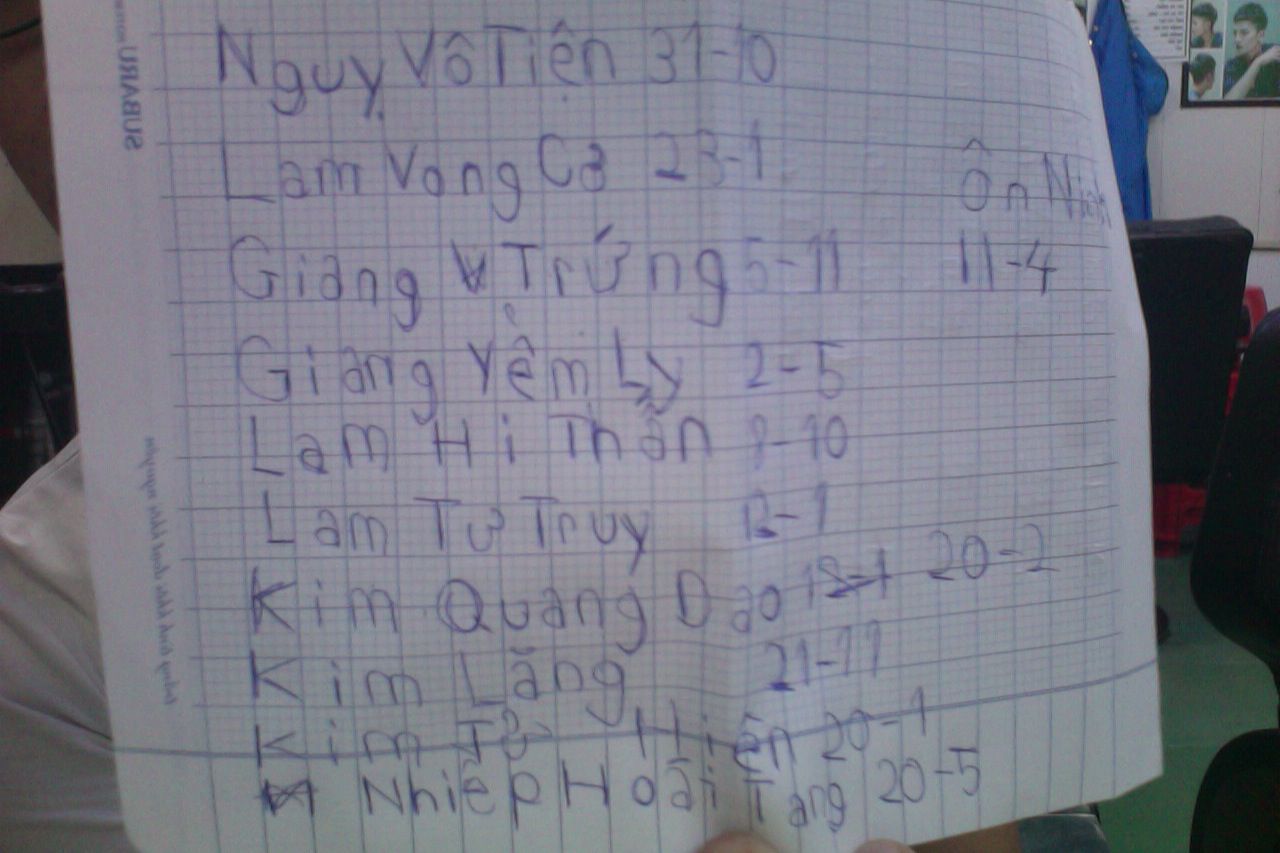 Nguỵ Vô Tiện 31-10
Lam Vong Cơ 23-1
Ôn Ninh
Giang Trừng 5-11
11-4
Giang Yếm Ly 2-5
Lam Hi Thần 8-10
Lam Tư Truy 12-1
Kim Quang Dao 20-2
Kim Lăng 21-11
Kim Tử Hiên 20-1
Nhiếp Hoài Tang 20-5
SUBARU